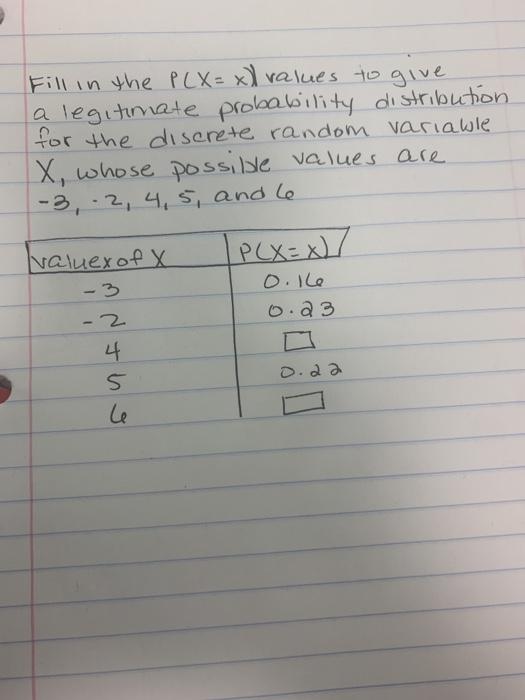 Fill in the P(X=x) values to give
a legitimate probability distribution
for the discrete random variable
X, whose possible values are
-3, -2, 4, 5, and 6
value x of X P(X=x)
-3 0.16
-2 0.23
4
5 0.22
6